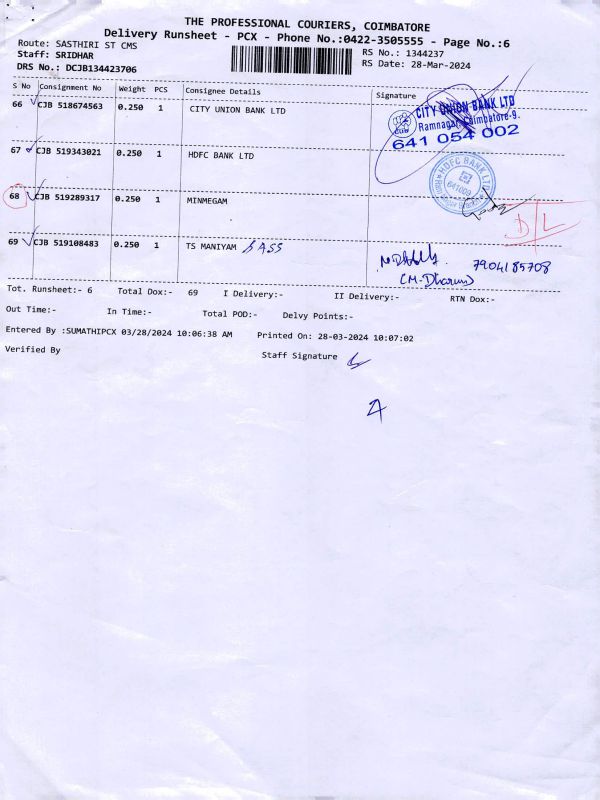 THE PROFESSIONAL COURIERS, COIMBATORE
Delivery Runsheet - PCX - Phone No.:0422-3505555 - Page No.:6
Route: SASTHIRI ST CMS
RS No.: 1344237
Staff: SRIDHAR
RS Date: 28-Mar-2024
DRS No.: DCJB134423706
S No Consignment No Weight PCS Consignee Details Signature
66 CJB 518674563 0.250 1 CITY UNION BANK LTD
CITY UNION BANK LTD
Ramnagar, Coimbatore-9.
641 054 002
67 CJB 519343021 0.250 1 HDFC BANK LTD
HDFC BANK LTD
641009
68 CJB 519289317 0.250 1 MINMEGAM
D/L
69 CJB 519108483 0.250 1 TS MANIYAM
7904185708
(M-Dharun)
Tot. Runsheet:- 6 Total Dox:- 69 I Delivery:- II Delivery:- RTN Dox:-
Out Time:- In Time:- Total POD:- Delvy Points:-
Entered By :SUMATHIPCX 03/28/2024 10:06:38 AM Printed On: 28-03-2024 10:07:02
Verified By Staff Signature